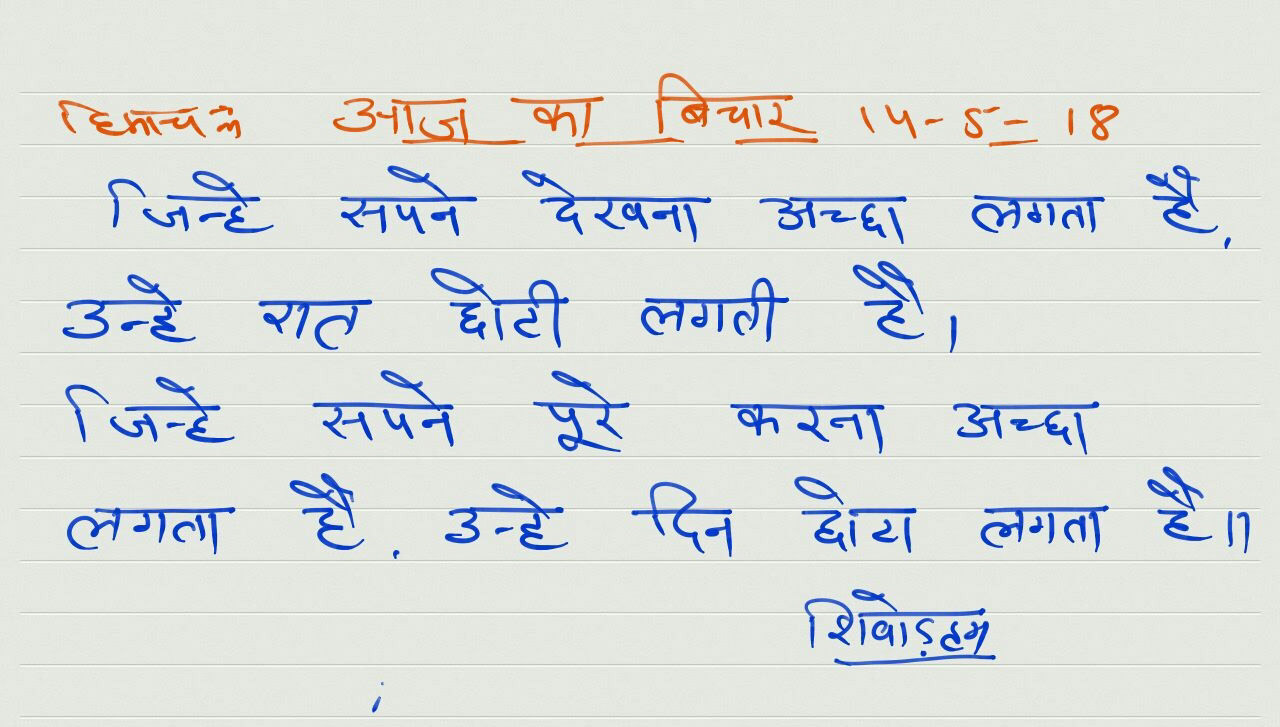 हिमाचल आज का बिचार 14-5-18
जिन्हे सपने देखना अच्छा लगता है,
उन्हे रात छोटी लगती है।
जिन्हे सपने पूरे करना अच्छा
लगता है, उन्हे दिन छोटा लगता है॥
शिवोऽहम